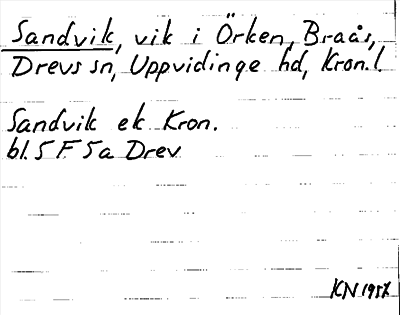 Sandvik, vik i Örken, Braås,
Drevs sn, Uppvidinge hd, Kron. l.
Sandvik ek Kron.
bl. 5 F 5a Drev
KN 1957